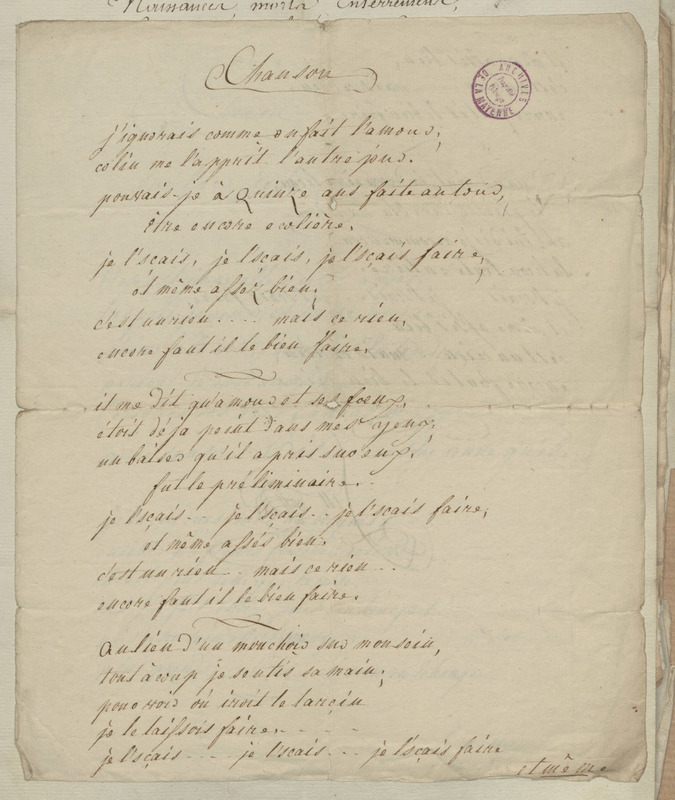 Naissances, morts Enterrement,
Chanson
ARCHIVES DE LA MAYENNE
j'ignorais comme on fait l'amour,
colin me l'apprit l'autre jour.
pouvais-je à Quinze ans faite au tour,
être encore ecolière.
je l'scais, je l'scais, je l'sçais faire,
et même assez bien,
c'est un rien .... mais ce rien,
encore faut il le bien faire.
il me dit qu'amour et ses feux,
étoit déja peint dans mes yeux,
un baiser qu'il a pris sur eux,
fut le préliminaire.
je l'sçais -- je l'sçais -- je l'sçais faire,
et même assés bien.
c'est un rien -- mais ce rien --
encore faut il le bien faire.
au lieu d'un mouchoir sur mon sein,
tout à coup je sentis sa main,
pour voir où iroit le
je le laissois faire. - - - -
je l'sçais ---- je l'scais --- je l'sçais faire
et même